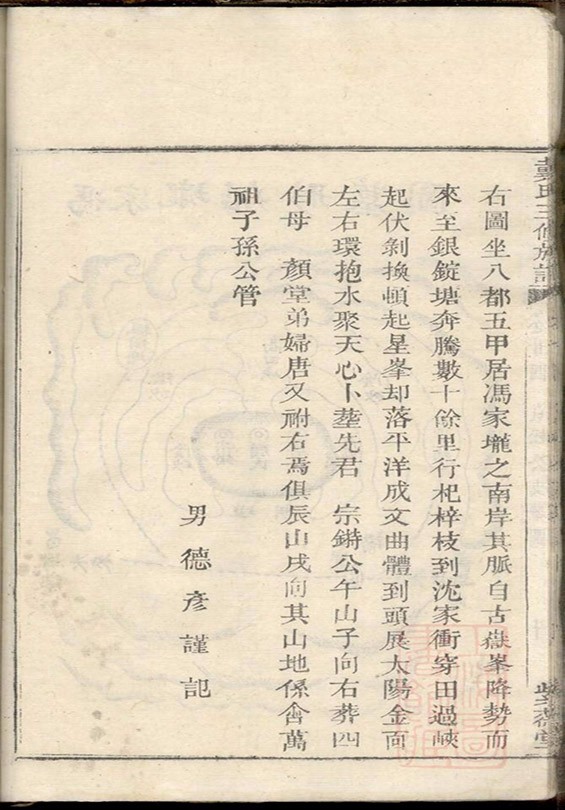 右圖坐八都五甲居馮家壠之南岸其脈自古嶽峯降勢而
來至銀錠塘奔騰數十餘里行杞梓枝到沈家衝穿田過峽
起伏剝換頓起星峯却落平洋成文曲體到頭展太陽金面
左右環抱水聚天心卜塟先君 宗鏘公午山子向右葬四
伯母 顏堂弟婦唐又祔右焉俱辰山戌向其山地係會萬
祖子孫公管
男德彥謹記